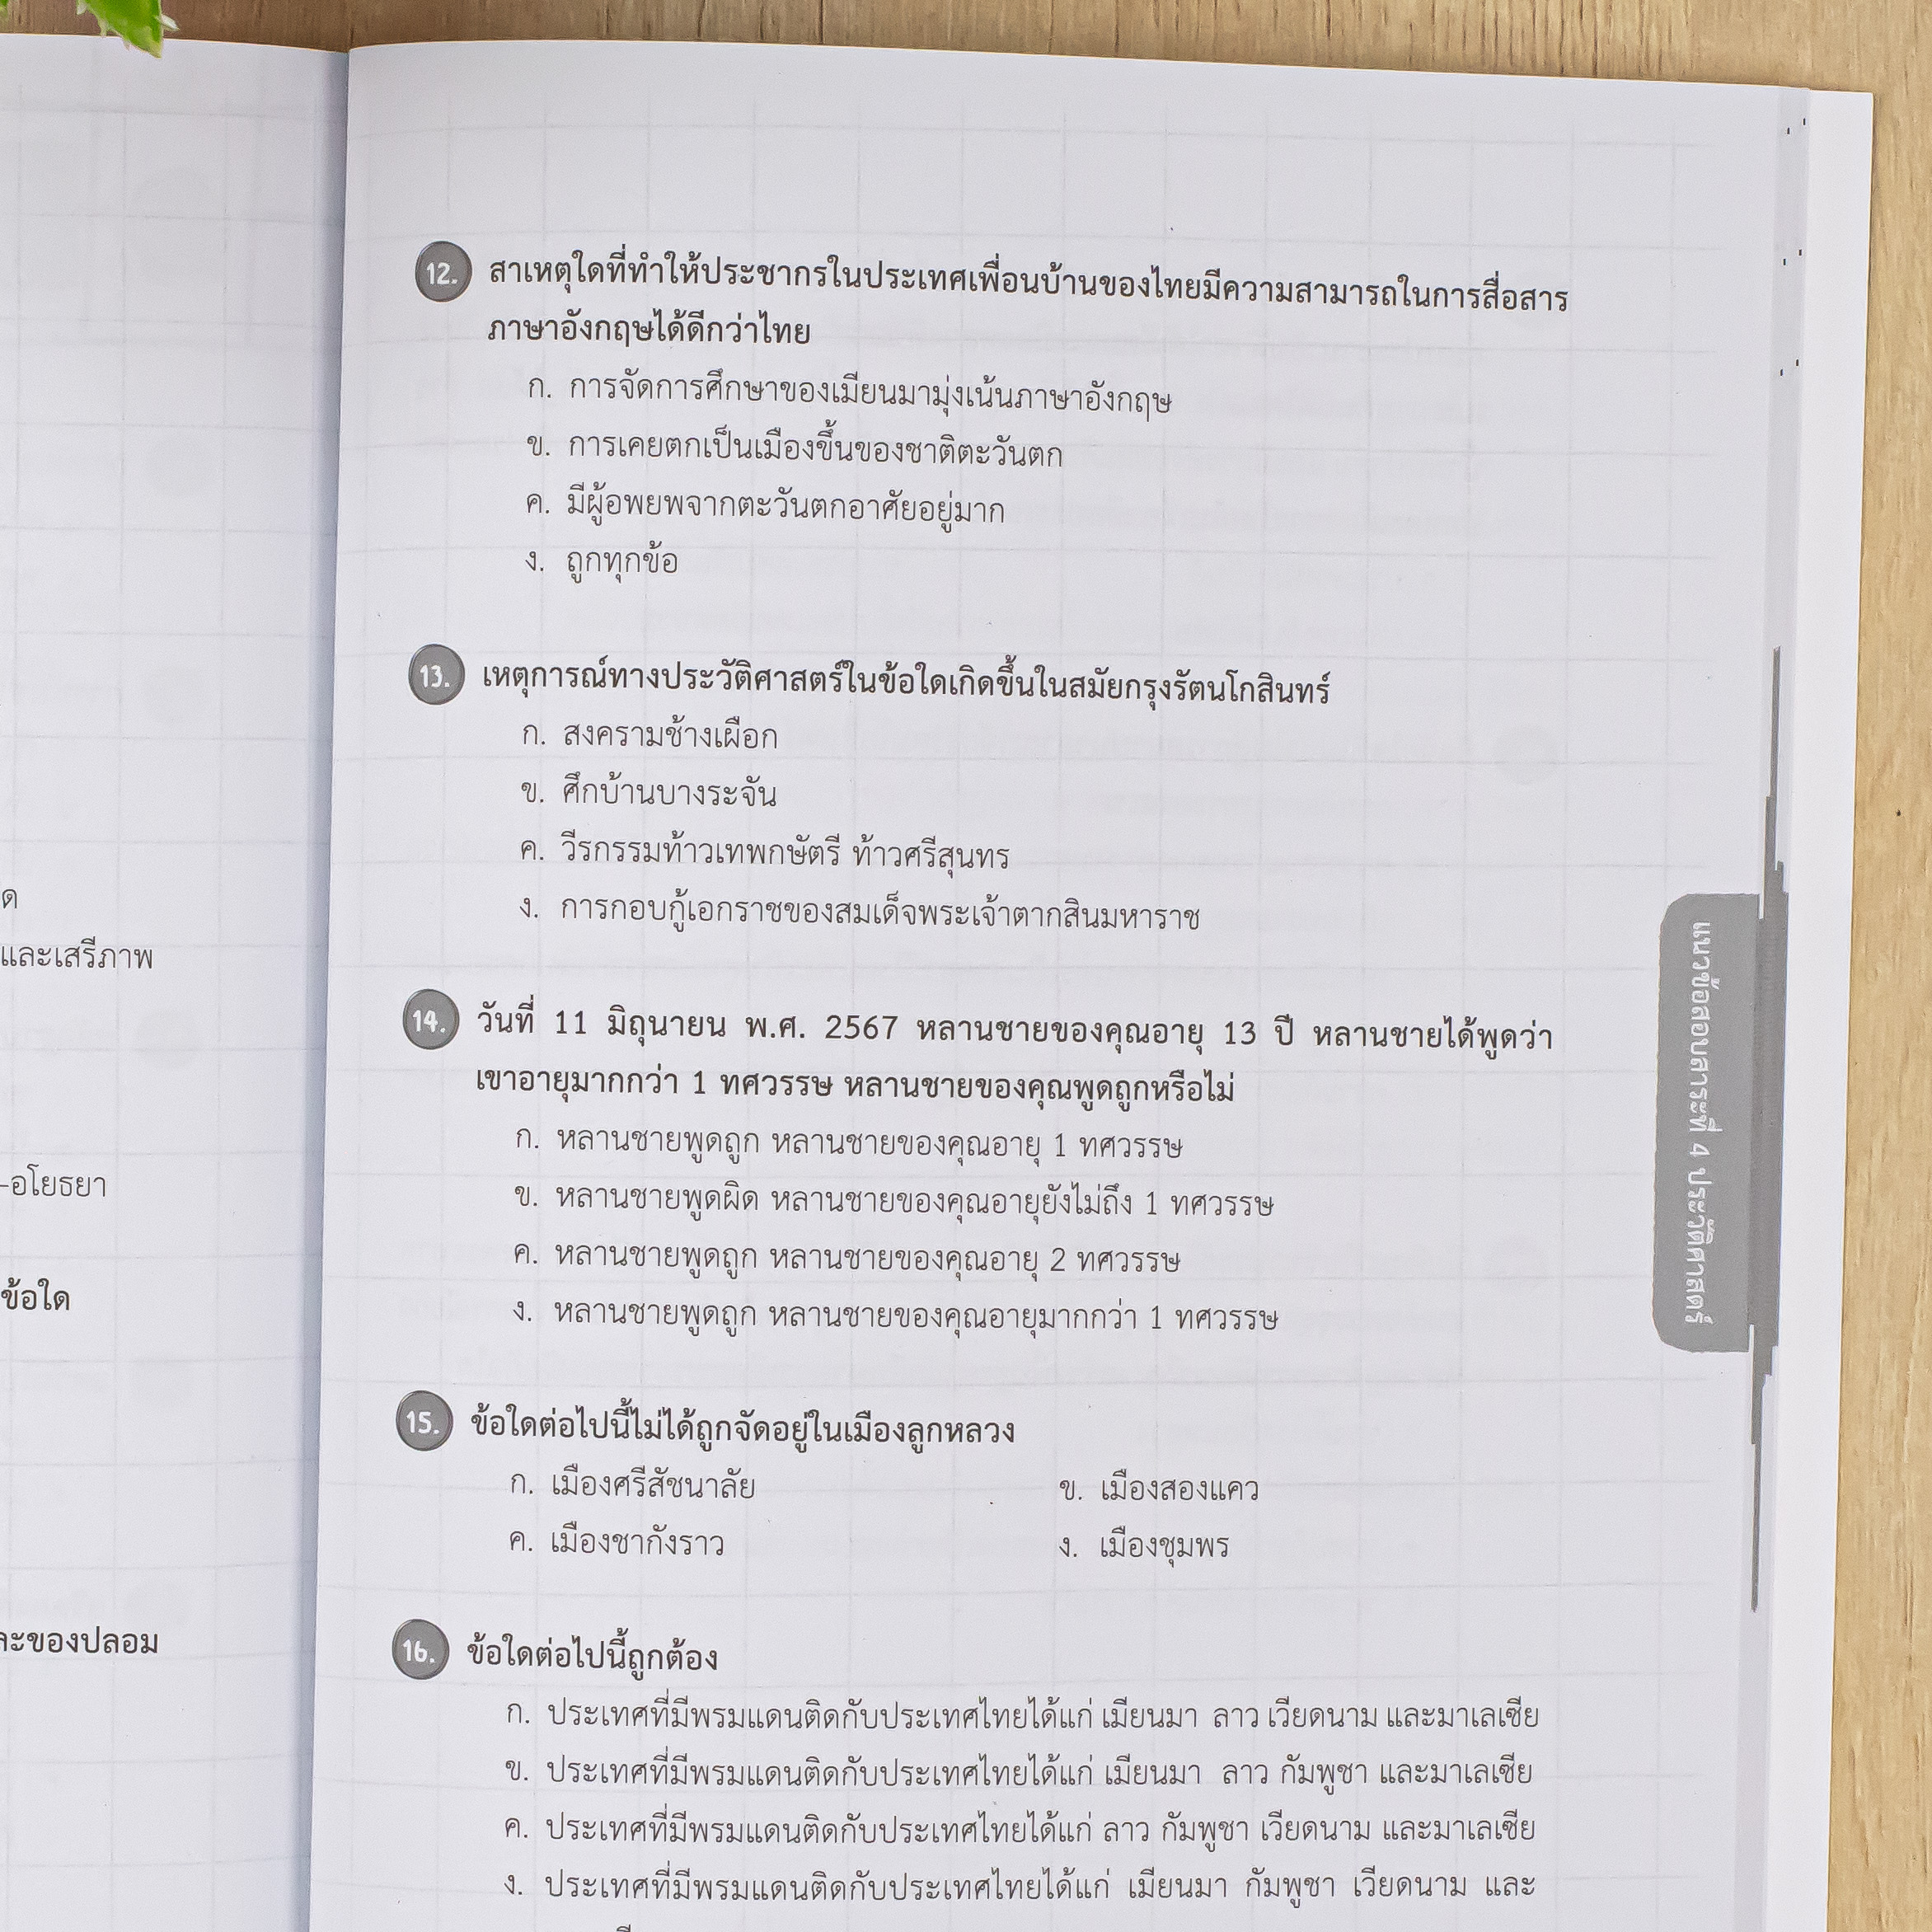 ด
และเสรีภาพ
-อโยธยา
ข้อใด
ละของปลอม
12. สาเหตุใดที่ทำให้ประชากรในประเทศเพื่อนบ้านของไทยมีความสามารถในการสื่อสาร
ภาษาอังกฤษได้ดีกว่าไทย
ก. การจัดการศึกษาของเมียนมามุ่งเน้นภาษาอังกฤษ
ข. การเคยตกเป็นเมืองขึ้นของชาติตะวันตก
ค. มีผู้อพยพจากตะวันตกอาศัยอยู่มาก
ง. ถูกทุกข้อ
13. เหตุการณ์ทางประวัติศาสตร์ในข้อใดเกิดขึ้นในสมัยกรุงรัตนโกสินทร์
ก. สงครามช้างเผือก
ข. ศึกบ้านบางระจัน
ค. วีรกรรมท้าวเทพกษัตรี ท้าวศรีสุนทร
ง. การกอบกู้เอกราชของสมเด็จพระเจ้าตากสินมหาราช
14. วันที่ 11 มิถุนายน พ.ศ. 2567 หลานชายของคุณอายุ 13 ปี หลานชายได้พูดว่า
เขาอายุมากกว่า 1 ทศวรรษ หลานชายของคุณพูดถูกหรือไม่
ก. หลานชายพูดถูก หลานชายของคุณอายุ 1 ทศวรรษ
ข. หลานชายพูดผิด หลานชายของคุณอายุยังไม่ถึง 1 ทศวรรษ
ค. หลานชายพูดถูก หลานชายของคุณอายุ 2 ทศวรรษ
ง. หลานชายพูดถูก หลานชายของคุณอายุมากกว่า 1 ทศวรรษ
15. ข้อใดต่อไปนี้ไม่ได้ถูกจัดอยู่ในเมืองลูกหลวง
ก. เมืองศรีสัชนาลัย ข. เมืองสองแคว
ค. เมืองชากังราว ง. เมืองชุมพร
16. ข้อใดต่อไปนี้ถูกต้อง
ก. ประเทศที่มีพรมแดนติดกับประเทศไทยได้แก่ เมียนมา ลาว เวียดนาม และมาเลเซีย
ข. ประเทศที่มีพรมแดนติดกับประเทศไทยได้แก่ เมียนมา ลาว กัมพูชา และมาเลเซีย
ค. ประเทศที่มีพรมแดนติดกับประเทศไทยได้แก่ ลาว กัมพูชา เวียดนาม และมาเลเซีย
ง. ประเทศที่มีพรมแดนติดกับประเทศไทยได้แก่ เมียนมา กัมพูชา เวียดนาม และ
แนวข้อสอบสาระที่ 4 ประวัติศาสตร์